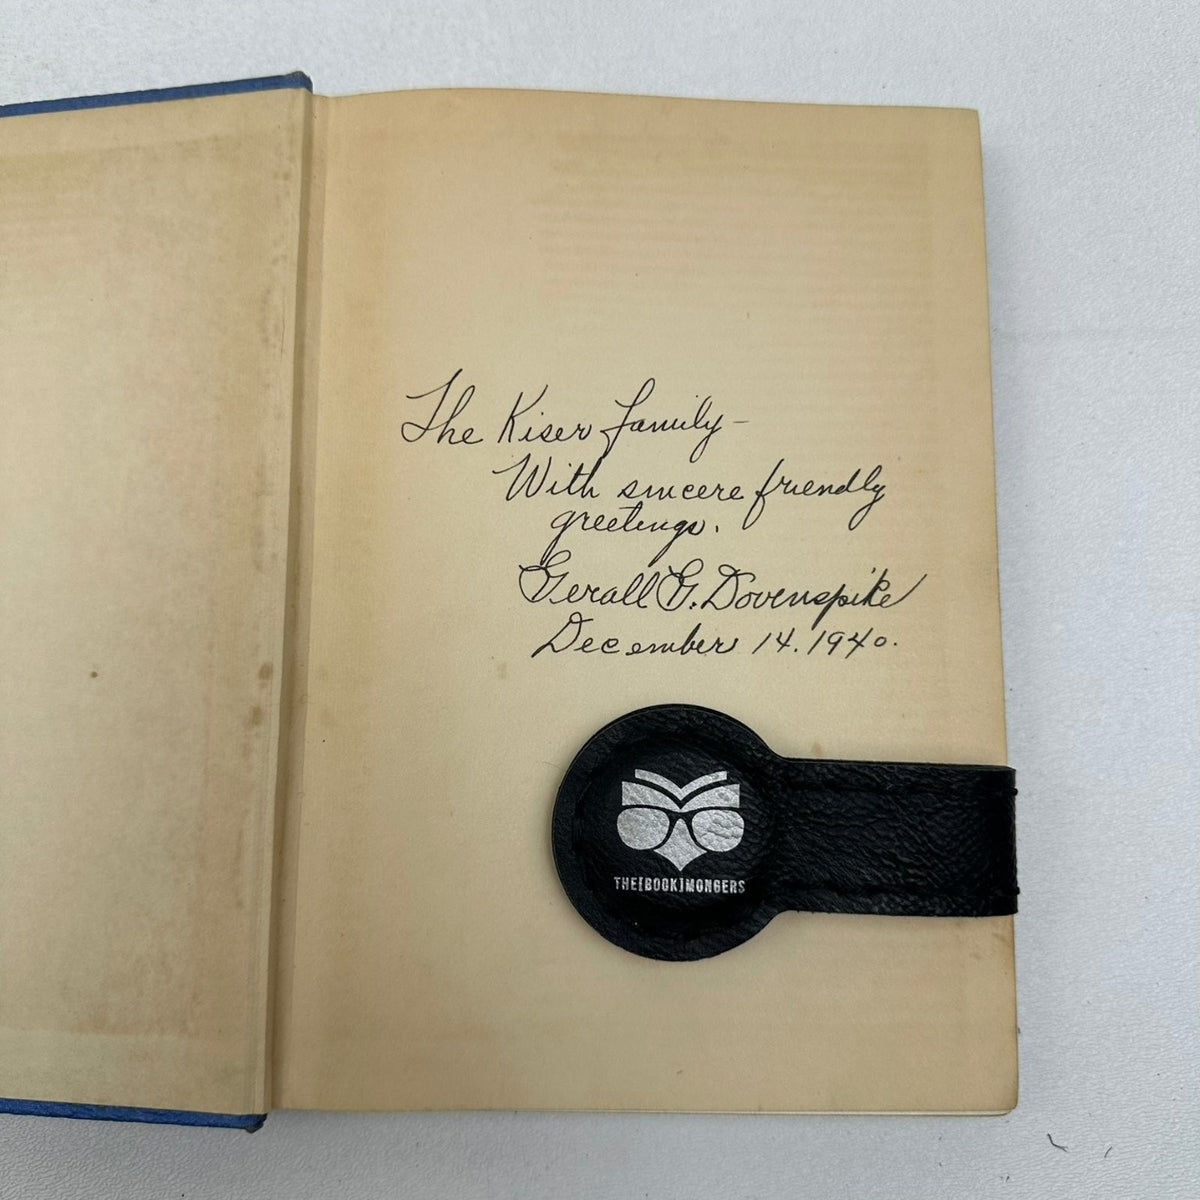 The Kiser family –
With sincere friendly
greetings.
Gerall G. Dovenspike
December 14. 1940.
THE[BOOK]MONGERS